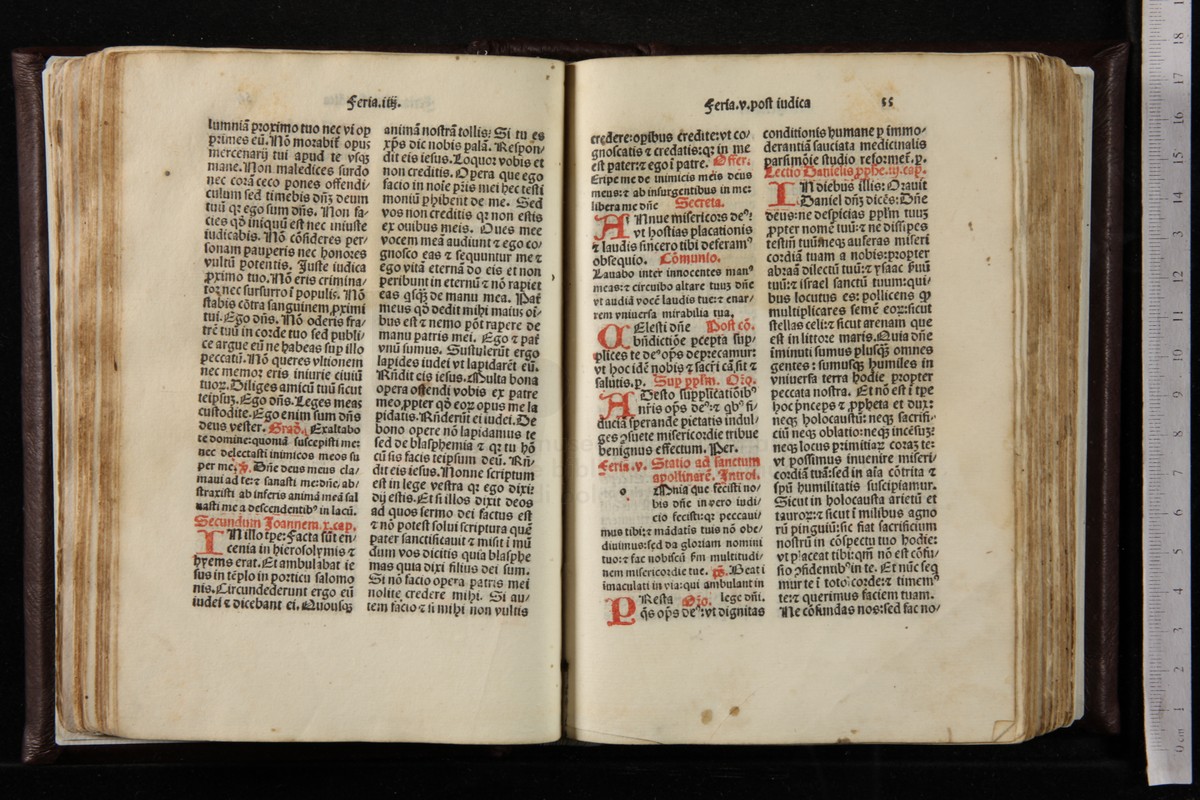 Feria.iiij.
lumniã proximo tuo nec vi op
primes eũ. Nõ morabit̃ opus
mercenarij tui apud te vsq;
mane. Non maledices surdo
nec corã ceco pones offendi/
culum sed timebis dñ3 deum
tuũ qz ego sum dñs. Non fa/
cies qd̃ iniquũ est nec iniuste
iudicabis. Nõ cõsideres per/
sonam pauperis nec honores
vultũ potentis. Juste iudica
ꝓximo tuo. Nõ eris crimina/
tor nec susurro ĩ populis. Nõ
stabis cõtra sanguinem ꝓximi
tui. Ego dñs. Nõ oderis fra/
trẽ tuũ in corde tuo sed publi/
ce argue eũ ne habeas sup illo
peccatũ. Nõ queres vltionem
nec memor eris iniurie ciuiũ
tuoꝝ. Diliges amicũ tuũ sicut
teipsuz. Ego dñs. Leges meas
custodite. Ego enim sum dñs
deus vester. Grad̃. Exaltabo
te domine: quoniã suscepisti me:
nec delectasti inimicos meos su
per me. ℣. Dñe deus meus cla/
maui ad te: ⁊ sanasti me: dñe ab/
straxisti ab inferis animã meã sal
uasti me a descendentibꝰ in lacũ.
Secundum Joannem.x.cap.
IN illo tp̃e: Facta sũt en/
cenia in hierosolymis ⁊
hyems erat. Et ambulabat ie
sus in tẽplo in porticu salomo
nis. Circundederunt ergo eũ
iudei ⁊ dicebant ei. Quousq;
animã nostrã tollis: Si tu es
xp̃s dic nobis palã. Respon/
dit eis iesus. Loquor vobis et
non creditis. Opera que ego
facio in noĩe p̃ris mei hec testi
moniũ phibent de me. Sed
vos non creditis qz non estis
ex ouibus meis. Oues mee
vocem meã audiunt ⁊ ego co/
gnosco eas ⁊ sequuntur me ⁊
ego vitã eternã do eis et non
peribunt in eternũ ⁊ nõ rapiet
eas q̃sq̃ de manu mea. Pat̃
meus qd̃ dedit mihi maius oĩ/
bus est ⁊ nemo põt rapere de
manu patris mei. Ego ⁊ pat̃
vnũ sumus. Sustulerũt ergo
lapides iudei vt lapidarẽt eũ.
Rñdit eis iesus. Multa bona
opera ostendi vobis ex patre
meo, ꝓpter qd̃ eoꝝ opus me la
pidatis. Rñderũt ei iudei. De
bono opere nõ lapidamus te
sed de blasphemia ⁊ qz tu hõ
cũ sis facis teipsum deũ. Rñ/
dit eis iesus. Nonne scriptum
est in lege vestra qz ego dixi:
dij estis. Et si illos dixit deos
ad quos sermo dei factus est
⁊ nõ potest solui scriptura quẽ
pater sanctificauit ⁊ misit ĩ mũ
dum vos dicitis quia blasphe
mas quia dixi filius dei sum.
Si nõ facio opera patris mei
nolite credere mihi. Si au/
tem facio ⁊ si mihi non vultis
Feria.v.post iudica 55
credere: opibus credite: vt co/
gnoscatis ⁊ credatis: qz in me
est pater: ⁊ ego ĩ patre. Offer.
Eripe me de inimicis meis deus
meus: ⁊ ab insurgentibus in me:
libera me dñe Secreta.
ANnue misericors deꝰ:
vt hostias placationis
⁊ laudis sincero tibi deferamꝰ
obsequio. Cõmunio.
Lauabo inter innocentes manꝰ
meas: ⁊ circuibo altare tuuz dñe
vt audiã vocẽ laudis tue: ⁊ enar/
rem vniuersa mirabilia tua.
CElesti dñe Post cõ.
bñdictiõe pcepta sup/
plices te deꝰ op̃s deprecamur:
vt hoc idẽ nobis ⁊ sacri cã sit ⁊
salutis.p. Sup pp̃lm. Oꝛo.
ADesto supplicatiõibꝰ
nr̃is op̃s deꝰ: ⁊ qbꝰ fi/
duciã sperande pietatis indul/
ges ꝯsuete misericordie tribue
benignus effectum. Per.
Feria.v. Statio ad sanctum
apollinarẽ. Introi.
o Mnia que fecisti no/
bis dñe in vero iudi/
cio fecisti: qz peccaui/
mus tibi: ⁊ mãdatis tuis nõ obe/
diuimus: sed da gloriam nomini
tuo: ⁊ fac nobiscũ ẜm multitudi/
nem misericordie tue. p̃s. Beati
imaculati in via: qui ambulant in
PResta Oꝛo. lege dñi.
q̃s op̃s deꝰ: vt dignitas
conditionis humane p immo/
derantiã sauciata medicinalis
parsimõie studio reformet̃.p.
Lectio Danielis ꝓphe.iij.cap.
IN diebus illis: Orauit
Daniel dñ3 dicẽs: Dñe
deus: ne despicias pp̃lm tuuz
ꝓpter nomẽ tuũ: ⁊ ne dissipes
testm̃ tuũ: neq; auferas miseri
cordiã tuam a nobis: propter
abraã dilectũ tuũ: ⁊ ysaac puũ
tuũ: ⁊ israel sanctũ tuum: qui/
bus locutus es: pollicens qꝫ
multiplicares semẽ eoꝝ: sicut
stellas celi: ⁊ sicut arenam que
est in littore maris. Quia dñe
iminuti sumus plusq̃ omnes
gentes: sumusq; humiles in
vniuersa terra hodie propter
peccata nostra. Et nõ est ĩ tp̃e
hoc pͥnceps ⁊ ꝓpheta et dux:
neq; holocaustũ: neq; sacrifi/
ciũ neq; oblatio: neq; incẽsuz:
neq; locus p̃mitiaꝝ coraz te:
vt possimus inuenire miseri/
cordiã tuã: sed in aĩa cõtrita ⁊
sp̃u humilitatis suscipiamur.
Sicut in holocausta arietũ et
tauroꝝ: ⁊ sicut ĩ milibus agno
rũ pinguiũ: sic fiat sacrificium
nostrũ in cõspectu tuo hodie:
vt placeat tibi: qm̃ nõ est cõfu/
sio ꝯfidentibꝰ in te. Et nũc seq̃
mur te ĩ toto corde: ⁊ timemꝰ
te: ⁊ querimus faciem tuam.
Ne cõfundas nos: sed fac no/